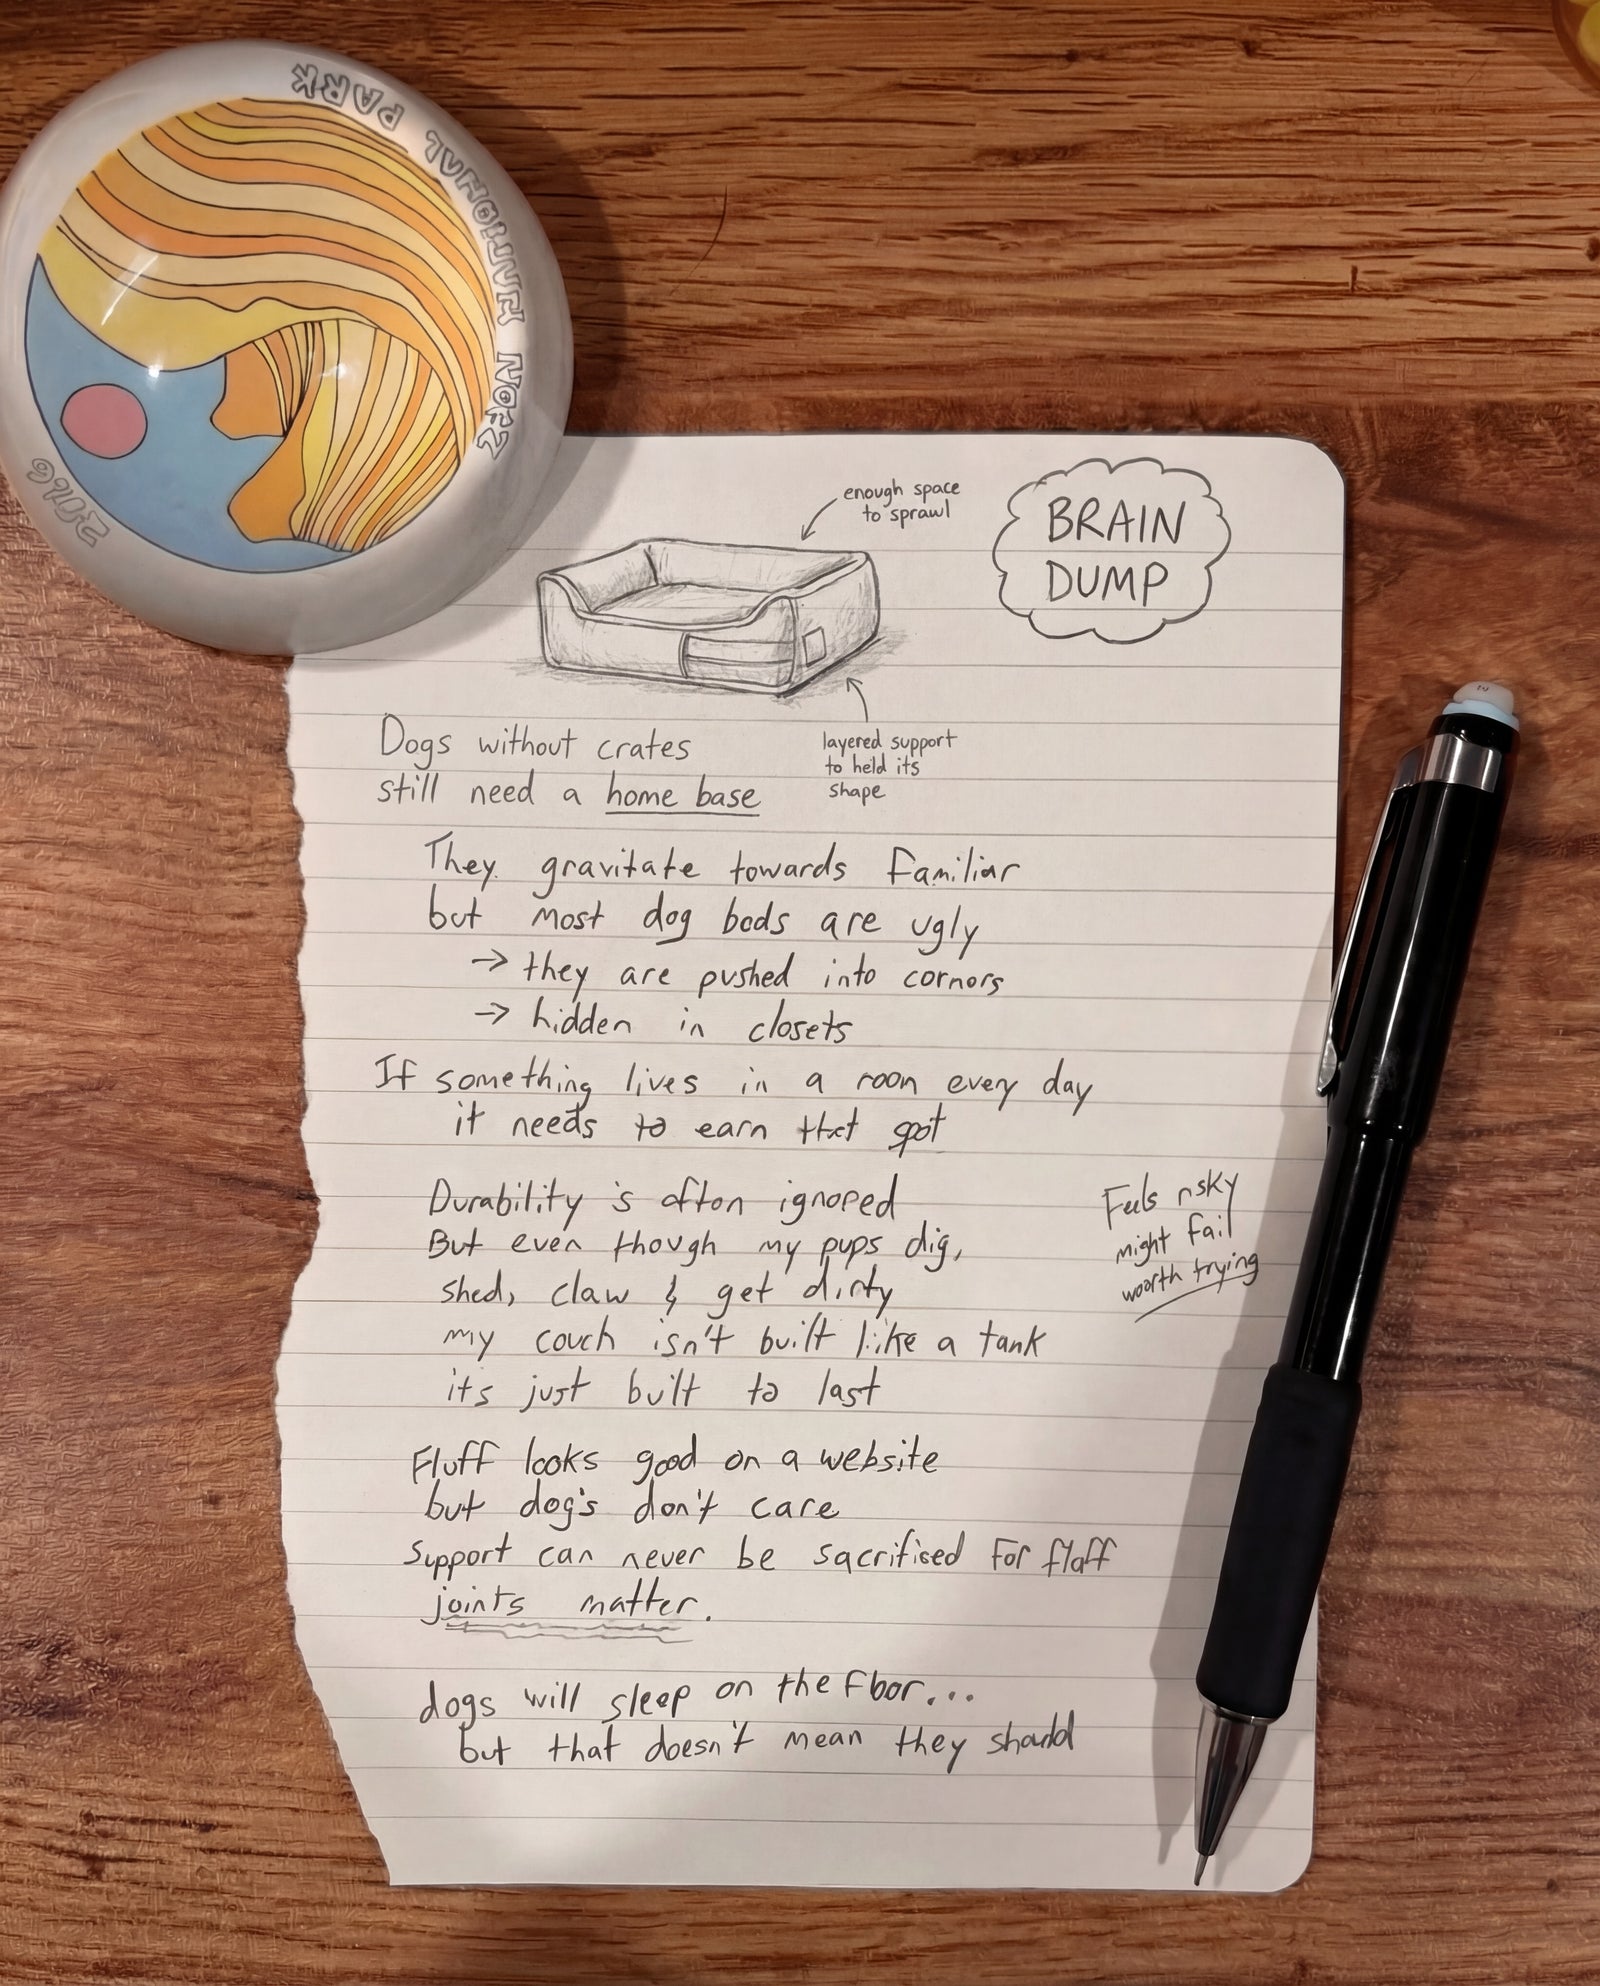 ZION NATIONAL PARK
2016
enough space
to sprawl
BRAIN
DUMP
layered support
to held its
shape
Dogs without crates
still need a home base
They gravitate towards familiar
but most dog beds are ugly
→ they are pushed into corners
→ hidden in closets
If something lives in a room every day
it needs to earn that spot
Durability is often ignored
But even though my pups dig,
shed, claw & get dirty
my couch isn't built like a tank
it's just built to last
Feels risky
might fail
worth trying
Fluff looks good on a website
but dog's don't care
Support can never be sacrificed for fluff
joints matter.
dogs will sleep on the floor...
but that doesn't mean they should